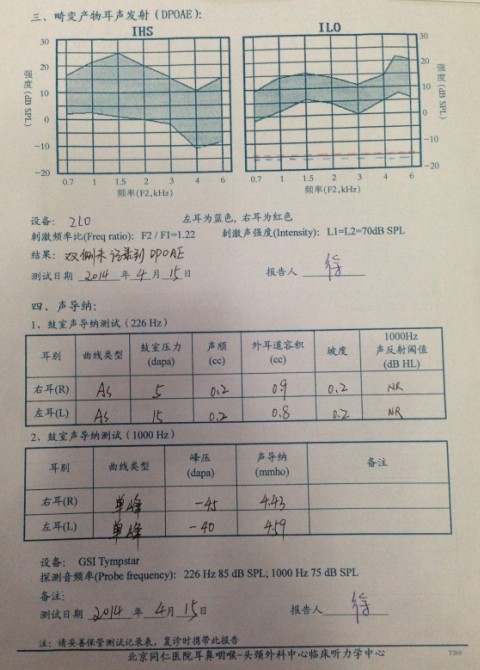 三、畸变产物耳声发射（DPOAE）：
IHS ILO
30 20 10 0 -10 -20
强度(dB SPL)
0.7 1 1.5 2 3 4 6
频率(F2,kHz)
30 20 10 0 -10 -20
强度(dB SPL)
0.7 1 1.5 2 3 4 6
频率(F2,kHz)
设备: ILO 左耳为蓝色, 右耳为红色
刺激频率比(Freq ratio): F2 / F1=1.22 刺激声强度(Intensity): L1=L2=70dB SPL
结果: 双侧未记录到 DPOAE
测试日期 2014 年 4 月 15 日 报告人 徐
四、声导纳：
1、鼓室声导纳测试（226 Hz）
耳别 曲线类型 鼓室压力(dapa) 声顺(cc) 外耳道容积(cc) 坡度 1000Hz声反射阈值(dB HL)
右耳(R) As 5 0.2 0.9 0.2 NR
左耳(L) As 15 0.2 0.8 0.2 NR
2、鼓室声导纳测试（1000 Hz）
耳别 曲线类型 峰压(dapa) 声导纳(mmho) 备注
右耳(R) 单峰 -45 4.43
左耳(L) 单峰 -40 4.59
设备: GSI Tympstar
探测音频率(Probe frequency): 226 Hz 85 dB SPL; 1000 Hz 75 dB SPL
备注:
测试日期 2014 年 4 月 15 日 报告人 徐
注: 请妥善保管测试记录表, 复诊时携带此报告
北京同仁医院耳鼻咽喉-头颈外科中心临床听力学中心